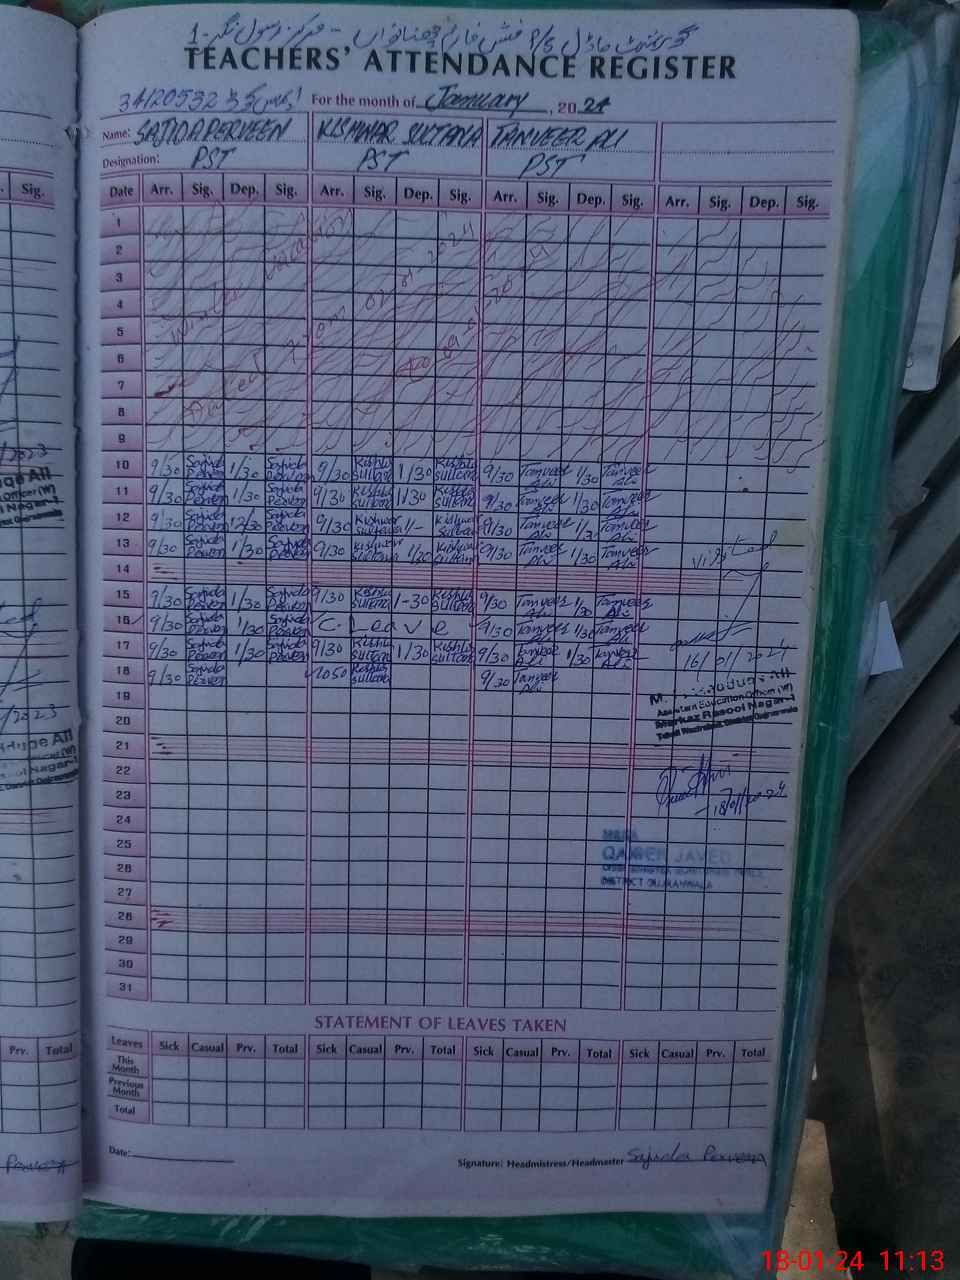 گورنمنٹ ماڈل P/S فش فارم چھناواں - مرکز رسول نگر-1
TEACHERS' ATTENDANCE REGISTER
34120532 For the month of January, 2024
Name: SAJIDA PERVEEN KISHWAR SULTANA TANVEER ALI
Designation: PST PST PST
Date Arr. Sig. Dep. Sig. Arr. Sig. Dep. Sig. Arr. Sig. Dep. Sig. Arr. Sig. Dep. Sig.
1
2
3
4
5
6
7
8
9
Winter vacation
from 02-01-2024
10 9/30 Sajida Perveen 1/30 Sajida Perveen 9/30 Kishwar Sultana 1/30 Kishwar Sultana 9/30 Tanveer Ali 1/30 Tanveer Ali
11 9/30 Sajida Perveen 1/30 Sajida Perveen 9/30 Kishwar Sultana 1/30 Kishwar Sultana 9/30 Tanveer Ali 1/30 Tanveer Ali
12 9/30 Sajida Perveen 12/30 Sajida Perveen 9/30 Kishwar Sultana Kishwar Sultana 9/30 Tanveer Ali Tanveer Ali
13 9/30 Sajida Perveen 1/30 Sajida Perveen 9/30 Kishwar Sultana 1/30 Kishwar Sultana 9/30 Tanveer Ali 1/30 Tanveer Ali
visited
14
15 9/30 Sajida Perveen 1/30 Sajida Perveen 9/30 Kishwar Sultana 1-30 Kishwar Sultana 9/30 Tanveer Ali 1/30 Tanveer Ali
16 9/30 Sajida Perveen 1/30 Sajida Perveen C. Leave 9/30 Tanveer Ali 1/30 Tanveer Ali
17 9/30 Sajida Perveen 1/30 Sajida Perveen 9/30 Kishwar Sultana 1/30 Kishwar Sultana 9/30 Tanveer Ali 1/30 Tanveer Ali
16/01/2024
18 9/30 Sajida Perveen Kishwar Sultana 9/30 Tanveer Ali
Assistant Education Officer (W)
Markaz Rasool Nagar-I
19
20
21
22
23
18/01/2024
24
25
QAMER JAVED
26
DISTRICT GUJRANWALA
27
28
29
30
31
STATEMENT OF LEAVES TAKEN
Leaves Sick Casual Prv. Total Sick Casual Prv. Total Sick Casual Prv. Total Sick Casual Prv. Total
This Month
Previous Month
Total
Date:
Signature: Headmistress/Headmaster Sajida Perveen
Sig.
/2023
Prv. Total
Perveen
18-01-24 11:13